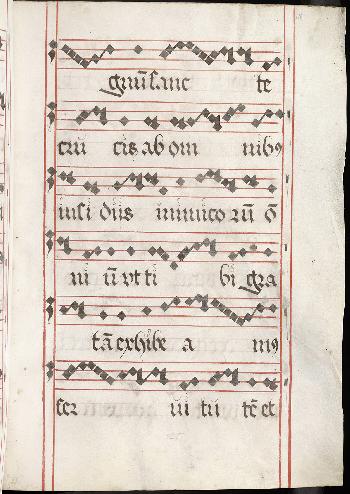 gnũ sanc te
cru cis ab om nibꝯ
insi diis inimico rũ õ
ni ũ vt ti bi gra
tã exhibe a mꝯ
ser ui tu tẽ et